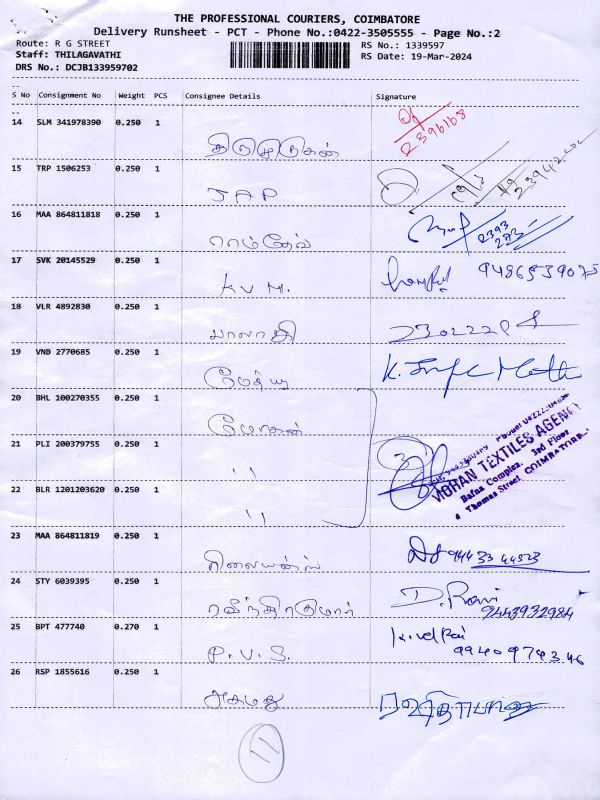 THE PROFESSIONAL COURIERS, COIMBATORE
Delivery Runsheet - PCT - Phone No.:0422-3505555 - Page No.:2
Route: R G STREET
RS No.: 1339597
Staff: THILAGAVATHI
RS Date: 19-Mar-2024
DRS No.: DCJB133959702
S No Consignment No Weight PCS Consignee Details Signature
14 SLM 341978390 0.250 1
2396168
திருமுருகன்
15 TRP 1506253 0.250 1
JAP
16 MAA 864811818 0.250 1
2393
273
ராம்தேவ்
17 SVK 20145529 0.250 1
9486539075
KVM.
18 VLR 4892830 0.250 1
பாலாஜி
19 VNB 2770685 0.250 1
20 BHL 100270355 0.250 1
மோகன்
21 PLI 200379755 0.250 1
''
VIBHAN TEXTILES AGENCY
Bafna Complex 3rd Floor
Thomas Street, COIMBATORE
22 BLR 1201203620 0.250 1
''
23 MAA 864811819 0.250 1
ரிலையன்ஸ்
24 STY 6039395 0.250 1
D. Ravi
9443932984
ரவீந்திரகுமார்
25 BPT 477740 0.270 1
9940979346
P.V.S.
26 RSP 1855616 0.250 1
அகமது
11